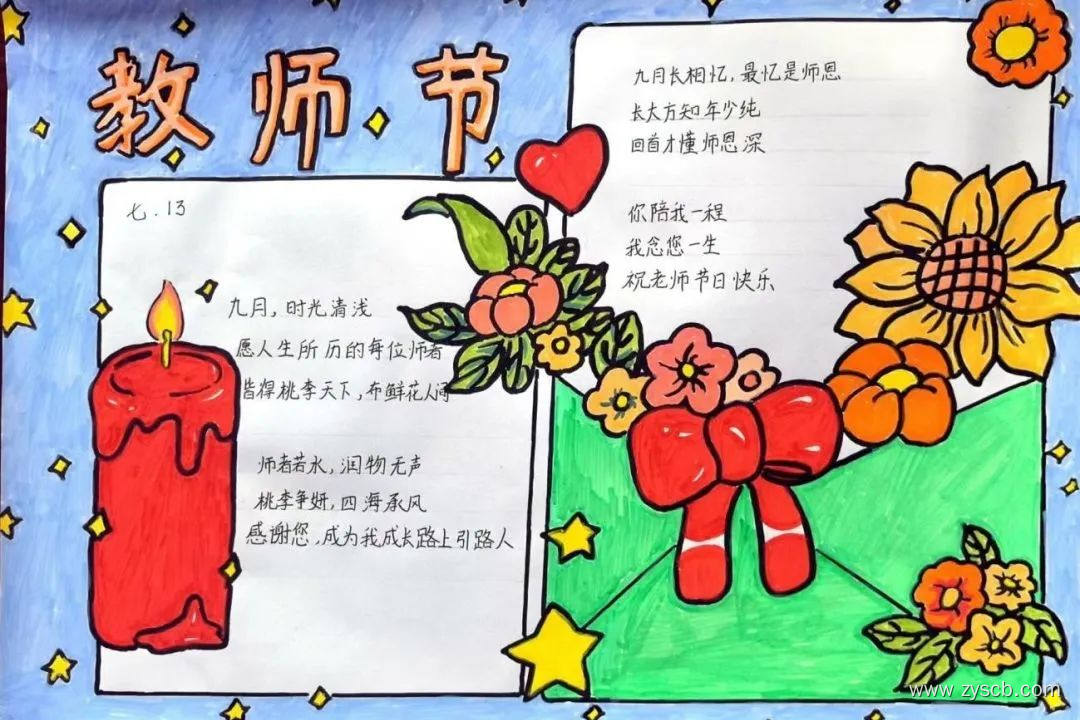 教师节
七.13
九月，时光清浅
愿人生所历的每位师者
皆得桃李天下，布鲜花人间
师者若水，润物无声
桃李争妍，四海承风
感谢您，成为我成长路上引路人
九月长相忆，最忆是师恩
长大方知年少纯
回首才懂师恩深
你陪我一程
我念您一生
祝老师节日快乐
www.zyscb.com